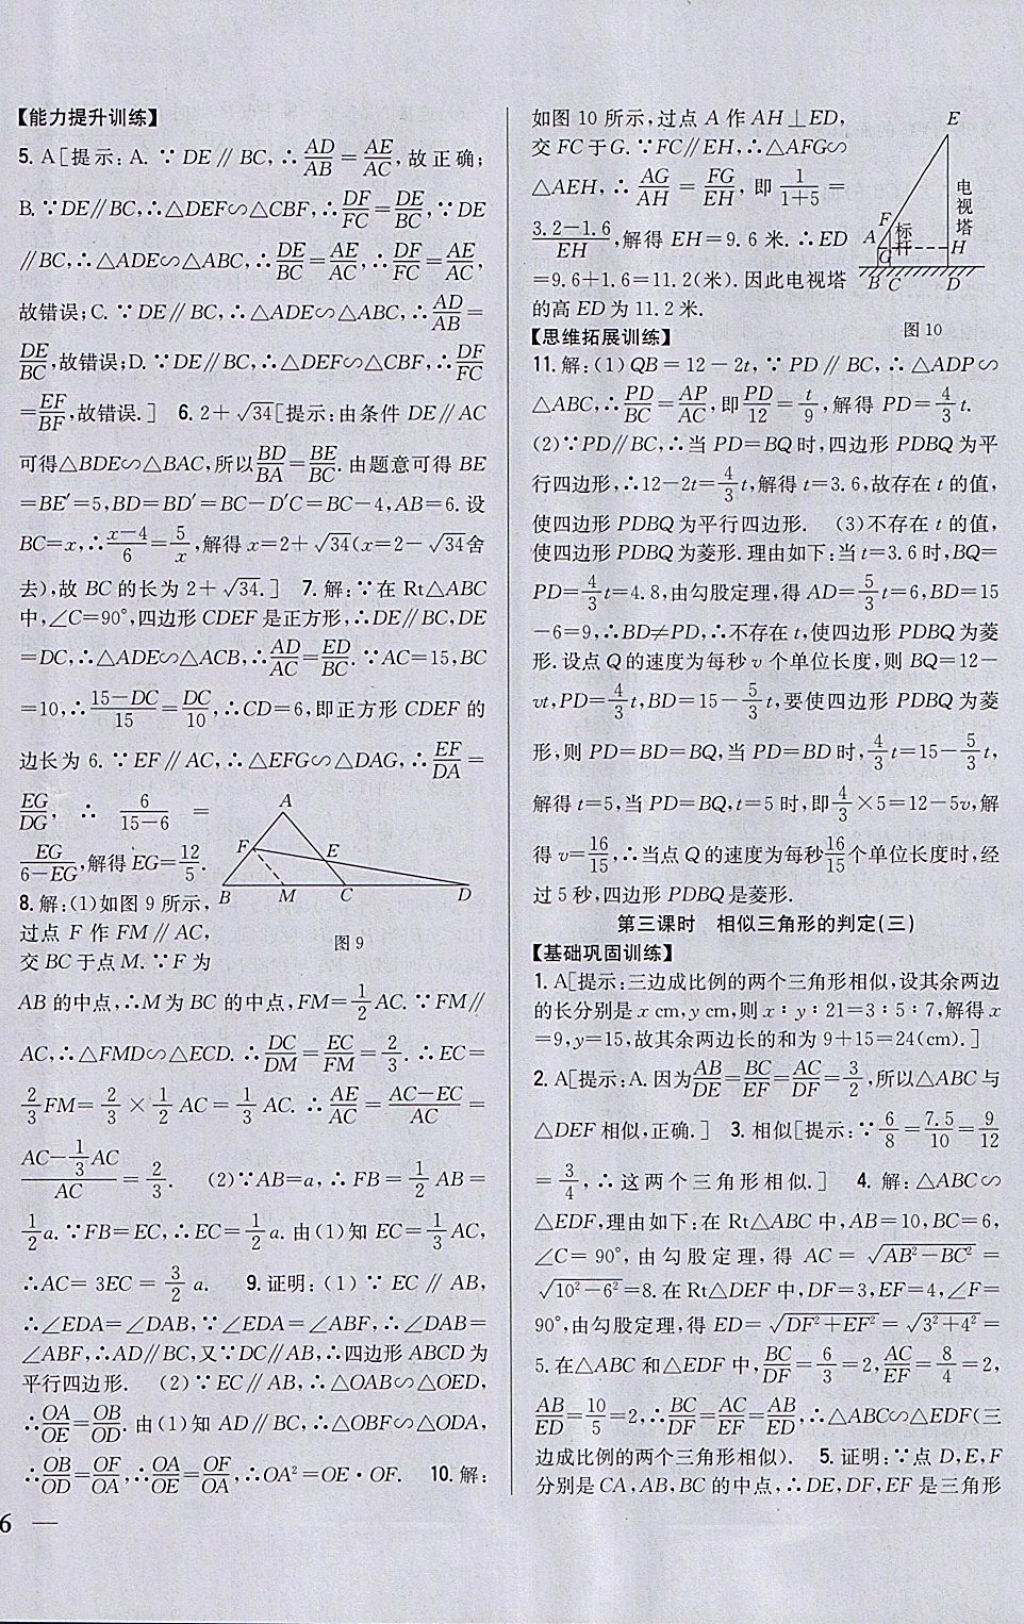 【能力提升训练】
5. A[提示:A. ∵DE∥BC,∴AD/AB=AE/AC,故正确;
B. ∵DE∥BC,∴△DEF∽△CBF,∴DF/FC=DE/BC,∵DE
∥BC,∴△ADE∽△ABC,∴DE/BC=AE/AC,∴DF/FC=AE/AC,
故错误;C. ∵DE∥BC,∴△ADE∽△ABC,∴AD/AB=
DE/BC,故错误;D. ∵DE∥BC,∴△DEF∽△CBF,∴DF/FC
=EF/BF,故错误.] 6. 2+√34[提示:由条件 DE∥AC
可得△BDE∽△BAC,所以BD/BA=BE/BC. 由题意可得 BE
=BE′=5,BD=BD′=BC-D′C=BC-4,AB=6. 设
BC=x,∴(x-4)/6=5/x,解得 x=2+√34(x=2-√34舍
去),故 BC 的长为 2+√34.] 7. 解:∵在 Rt△ABC
中,∠C=90°,四边形 CDEF 是正方形,∴DE∥BC,DE
=DC,∴△ADE∽△ACB,∴AD/AC=ED/BC. ∵AC=15,BC
=10,∴(15-DC)/15=DC/10,∴CD=6,即正方形 CDEF 的
边长为 6. ∵EF∥AC,∴△EFG∽△DAG,∴EF/DA=
EG/DG, ∴ 6/(15-6) =
EG/(6-EG),解得 EG=12/5.
8. 解:(1)如图 9 所示,
过点 F 作 FM∥AC,
交 BC 于点 M. ∵F 为
A
F
E
B
M
C
D
图 9
AB 的中点,∴M 为 BC 的中点,FM=1/2 AC. ∵FM∥
AC,∴△FMD∽△ECD. ∴DC/DM=EC/FM=2/3. ∴EC=
2/3 FM=2/3×1/2 AC=1/3 AC. ∴AE/AC=(AC-EC)/AC=
(AC-1/3 AC)/AC=2/3. (2)∵AB=a,∴FB=1/2 AB=
1/2 a. ∵FB=EC,∴EC=1/2 a. 由(1)知 EC=1/3 AC,
∴AC=3EC=3/2 a. 9. 证明:(1)∵EC∥AB,
∴∠EDA=∠DAB,∵∠EDA=∠ABF,∴∠DAB=
∠ABF,∴AD∥BC,又∵DC∥AB,∴四边形 ABCD 为
平行四边形. (2)∵EC∥AB,∴△OAB∽△OED,
∴OA/OE=OB/OD. 由(1)知 AD∥BC,∴△OBF∽△ODA,
∴OB/OD=OF/OA,∴OA/OE=OF/OA,∴OA²=OE·OF. 10. 解:
6 —
如图 10 所示,过点 A 作 AH⊥ED,
交 FC 于 G. ∵FC∥EH,∴△AFG∽
△AEH,∴AG/AH=FG/EH,即 1/(1+5)=
(3.2-1.6)/EH,解得 EH=9.6 米. ∴ED
=9.6+1.6=11.2(米). 因此电视塔
的高 ED 为 11.2 米.
E
电视塔
F
标杆
A
G
H
B
C
D
图 10
【思维拓展训练】
11. 解:(1)QB=12-2t,∵PD∥BC,∴△ADP∽
△ABC,∴PD/BC=AP/AC,即PD/12=t/9,解得 PD=4/3 t.
(2)∵PD∥BC,∴当 PD=BQ 时,四边形 PDBQ 为平
行四边形,∴12-2t=4/3 t,解得 t=3.6,故存在 t 的值,
使四边形 PDBQ 为平行四边形. (3)不存在 t 的值,
使四边形 PDBQ 为菱形. 理由如下:当 t=3.6 时,BQ=
PD=4/3 t=4.8,由勾股定理,得 AD=5/3 t=6,BD=15
-6=9,∴BD≠PD,∴不存在 t,使四边形 PDBQ 为菱
形. 设点 Q 的速度为每秒 v 个单位长度,则 BQ=12-
vt,PD=4/3 t,BD=15-5/3 t,要使四边形 PDBQ 为菱
形,则 PD=BD=BQ,当 PD=BD 时,4/3 t=15-5/3 t,
解得 t=5,当 PD=BQ,t=5 时,即4/3×5=12-5v,解
得 v=16/15,∴当点 Q 的速度为每秒16/15个单位长度时,经
过 5 秒,四边形 PDBQ 是菱形.
第三课时 相似三角形的判定(三)
【基础巩固训练】
1. A[提示:三边成比例的两个三角形相似,设其余两边
的长分别是 x cm,y cm,则 x∶y∶21=3∶5∶7,解得 x
=9,y=15,故其余两边长的和为 9+15=24(cm).]
2. A[提示:A. 因为AB/DE=BC/EF=AC/DF=3/2,所以△ABC 与
△DEF 相似,正确.] 3. 相似[提示:∵6/8=7.5/10=9/12
=3/4,∴这两个三角形相似.] 4. 解:△ABC∽
△EDF,理由如下:在 Rt△ABC 中,AB=10,BC=6,
∠C=90°,由勾股定理,得 AC=√(AB²-BC²)=
√(10²-6²)=8. 在 Rt△DEF 中,DF=3,EF=4,∠F=
90°,由勾股定理,得 ED=√(DF²+EF²)=√(3²+4²)=
5. 在△ABC 和△EDF 中,BC/DF=6/3=2,AC/EF=8/4=2,
AB/ED=10/5=2,∴BC/DF=AC/EF=AB/ED,∴△ABC∽△EDF(三
边成比例的两个三角形相似). 5. 证明:∵点 D,E,F
分别是 CA,AB,BC 的中点,∴DE,DF,EF 是三角形